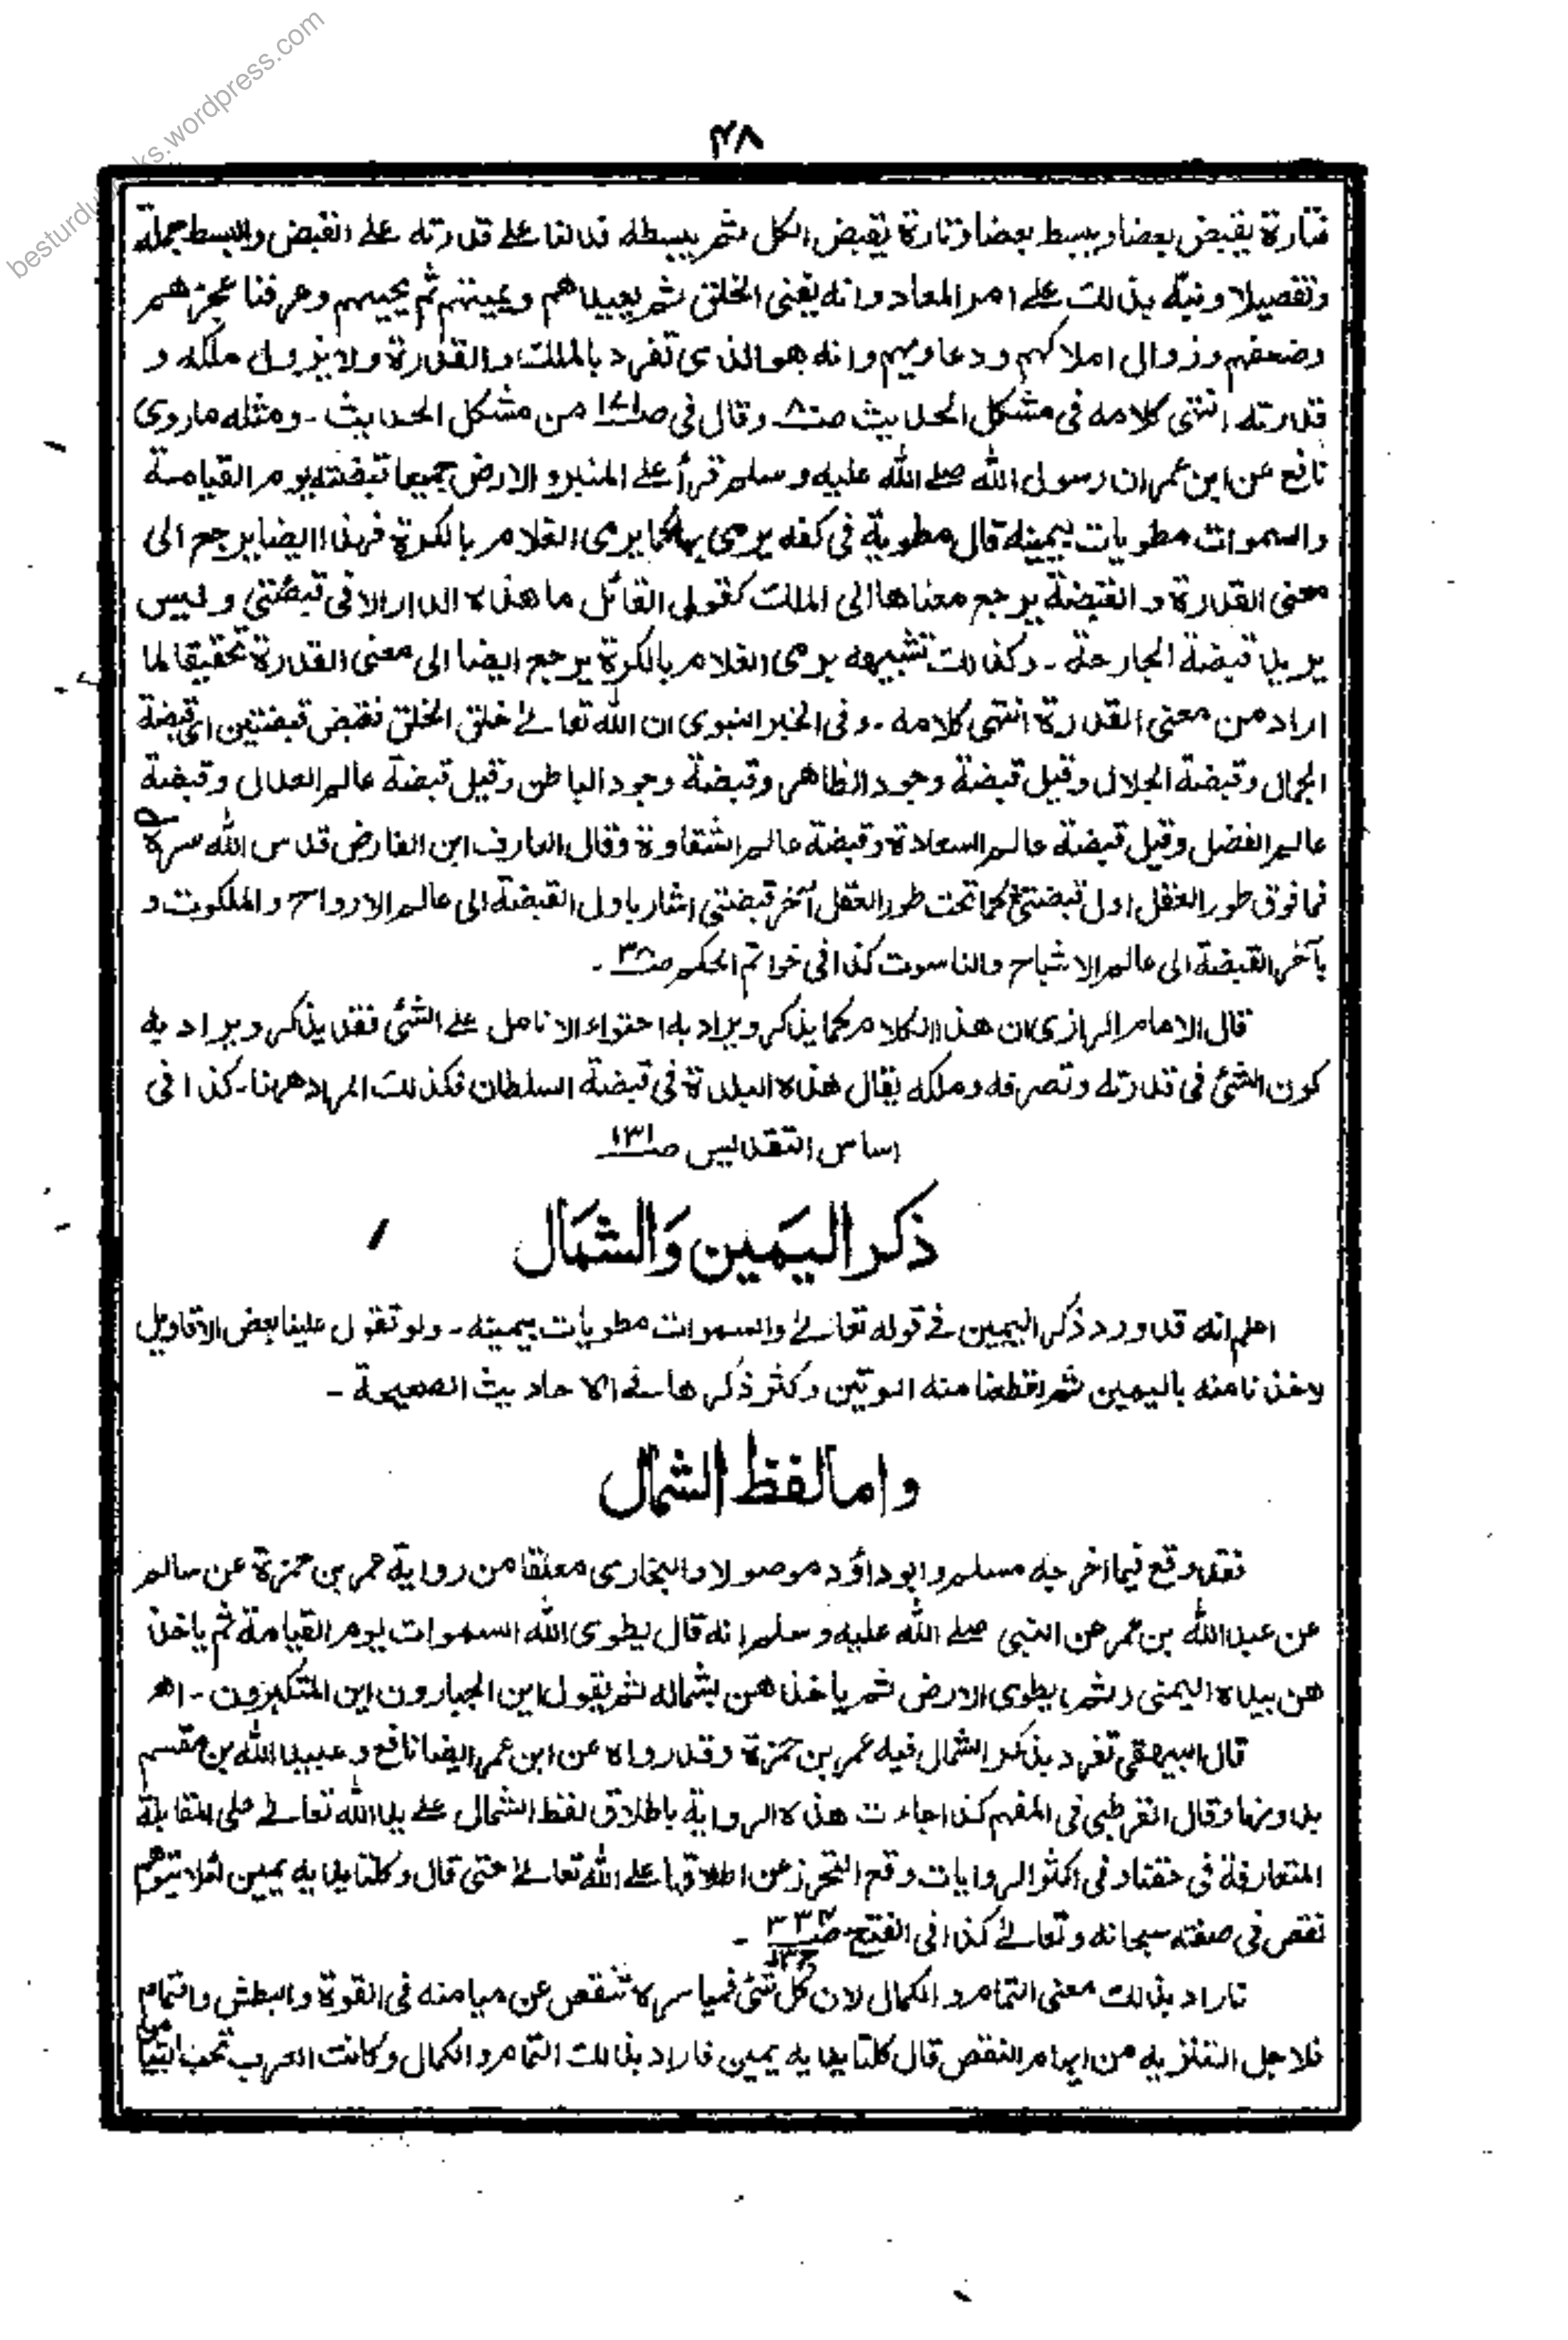 besturdubooks.wordpress.com
٣٨
فتارة يقبض بعضا ويبسط بعضا وتارة يقبض الكل ثم يبسطه فدلنا على قدرته على القبض والبسط جملة
وتفصيلا ونبّه بذلك على امر المعاد وانه يفنى الخلق ثم يعيدهم ويميتهم ثم يحييهم وعرفنا عجزهم
وضعفهم وزوال املاكهم ودعاويهم وانه هو الذى تفرد بالملك والقدرة ولا يزول ملكه و
قدرته انتهى كلامه فى مشكل الحديث وقال فى من مشكل الحديث ـ ومثله ماروى
نافع عن ابن عمر ان رسول الله صلى الله عليه وسلم قرأ على المنبر والارض جميعا قبضته يوم القيامة
والسموات مطويات بيمينه قال مطوية فى كفه يرمى بها كما يرمى الغلام بالكرة فهذا ايضا يرجع الى
معنى القدرة والقبضة يرجع معناها الى الملك كقول القائل ما هذه الدار الا فى قبضتى وليس
يريد قبضة الجارحة ـ وكذلك تشبيهه برمى الغلام بالكرة يرجع ايضا الى معنى القدرة تحقيقا لما
اراد من معنى القدرة انتهى كلامه ـ وفى الخبر النبوى ان الله تعالى خلق الخلق فقبض قبضتين اى قبضة
الجمال وقبضة الجلال وقيل قبضة وجود الظاهر وقبضة وجود الباطن وقيل قبضة عالم العدل وقبضة
عالم الفضل وقيل قبضة عالم السعادة وقبضة عالم الشقاوة وقال العارف ابن الفارض قدس الله سره
فما فوق طور العقل اول قبضتى كما تحت طور العقل آخر قبضتى اشار باول القبضة الى عالم الارواح والملكوت و
بآخر القبضة الى عالم الاشباح والناسوت كذا فى خواتم الحكم صـ٣٨ ـ
قال الامام الرازى ان هذا الكلام كما يذكر ويراد به احتواء الانامل على الشئ فقد يذكر ويراد به
كون الشئ فى قدرته وتصرفه وملكه يقال هذه البلدة فى قبضة السلطان فكذلك المراد ههنا ـ كذا فى
اساس التقديس صـ١٣١
ذكر اليَمين وَالشمَال
اعلم انه قد ورد ذكر اليمين فى قوله تعالى والسموات مطويات بيمينه ـ ولو تقول علينا بعض الاقاويل
لاخذنا منه باليمين ثم لقطعنا منه الوتين وكثر ذكرها فى الاحاديث الصحيحة ـ
واما لفظ الشمال
فقد وقع فيما اخرجه مسلم وابو داؤد موصولا والبخارى معلقا من رواية عمر بن حمزة عن سالم
عن عبد الله بن عمر عن النبى صلى الله عليه وسلم انه قال يطوى الله السموات يوم القيامة ثم ياخذ
هن بيده اليمنى ثم يطوى الارض ثم ياخذهن بشماله ثم يقول اين الجبارون اين المتكبرون ـ اهـ
قال البيهقى تفرد بذكر الشمال فيه عمر بن حمزة وقد رواه عن ابن عمر ايضا نافع وعبيد الله بن مقسم
بدونها وقال القرطبى فى المفهم كذا جاءت هذه الرواية باطلاق لفظ الشمال على يد الله تعالى على المقابلة
المتعارفة فى حقنا وفى اكثر الروايات وقع التحرز عن اطلاقها على الله تعالى حتى قال وكلتا يديه يمين لئلا يتوهم
نقص فى صفته سبحانه وتعالى كذا فى الفتح
فاراد بذلك معنى التمام والكمال لان كل شئ فمياسره تنقص عن ميامنه فى القوة والبطش والتمام
فلاجل التنزيه من ايهام النقص قال كلتا يديه يمين فاراد بذلك التمام والكمال وكانت العرب تحب التيامن